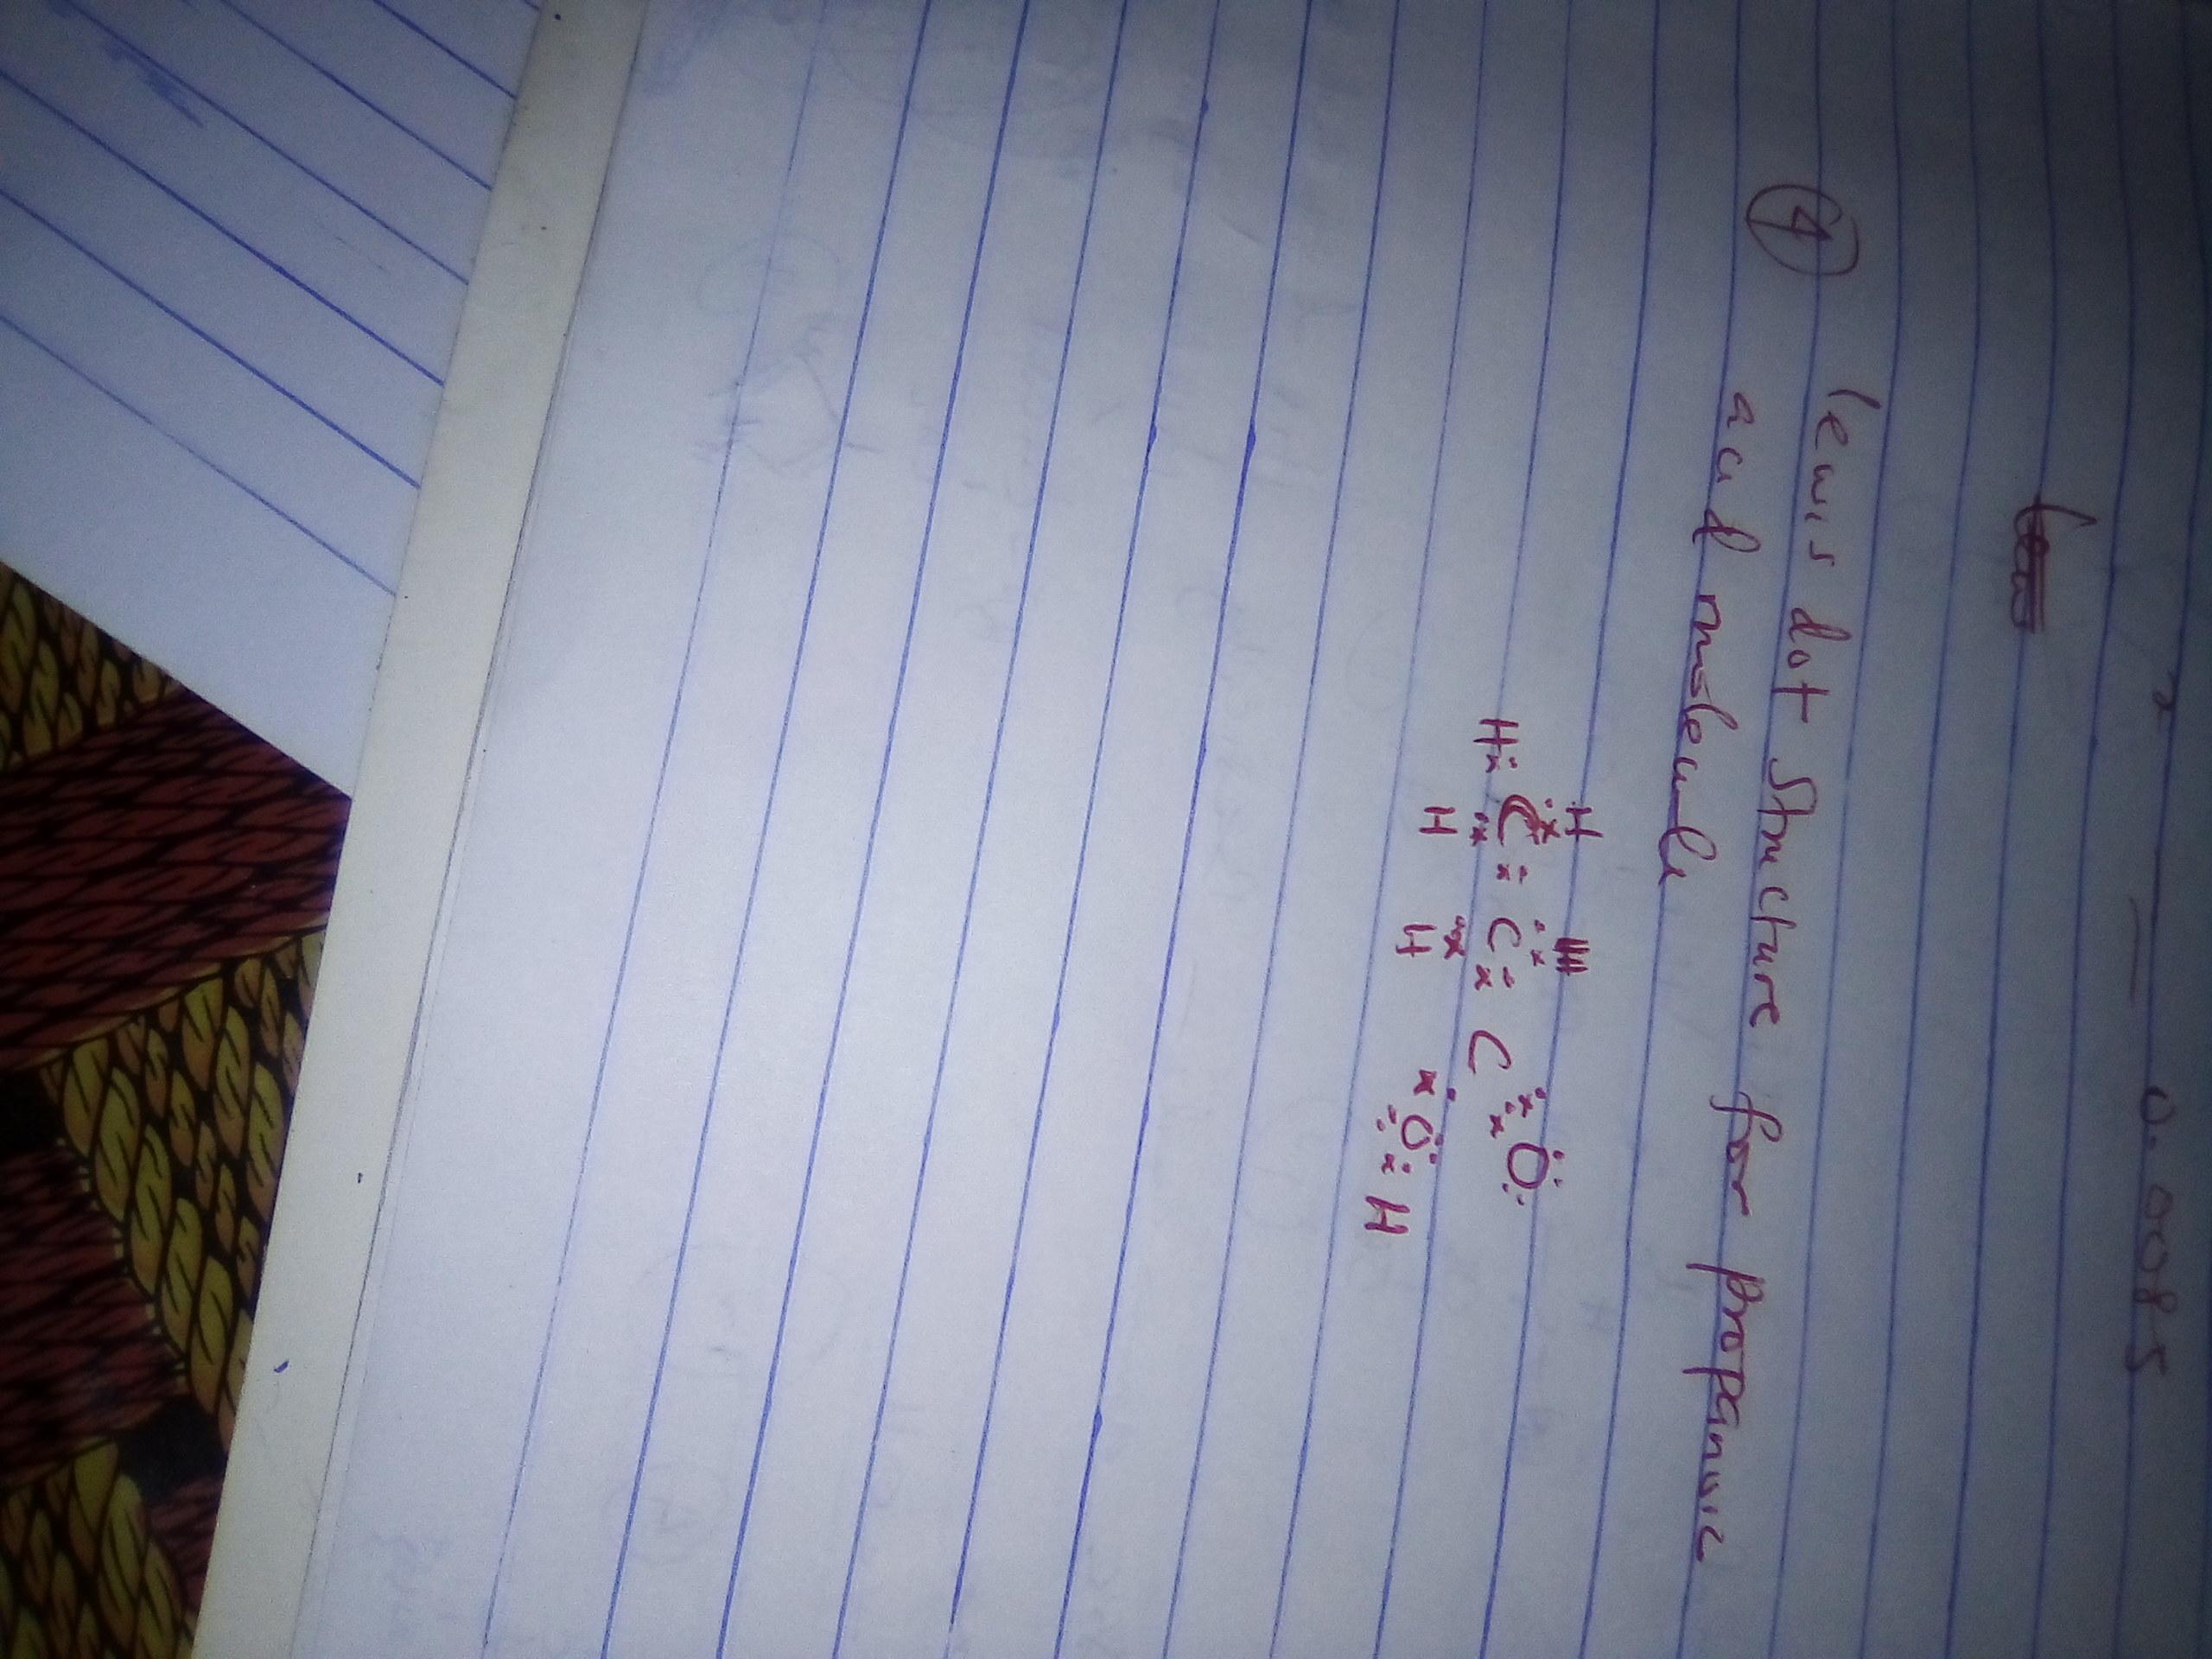 0.0085
④ lewis dot Structure for propanoic
acid molecule
H H
H C C C O
H H O H